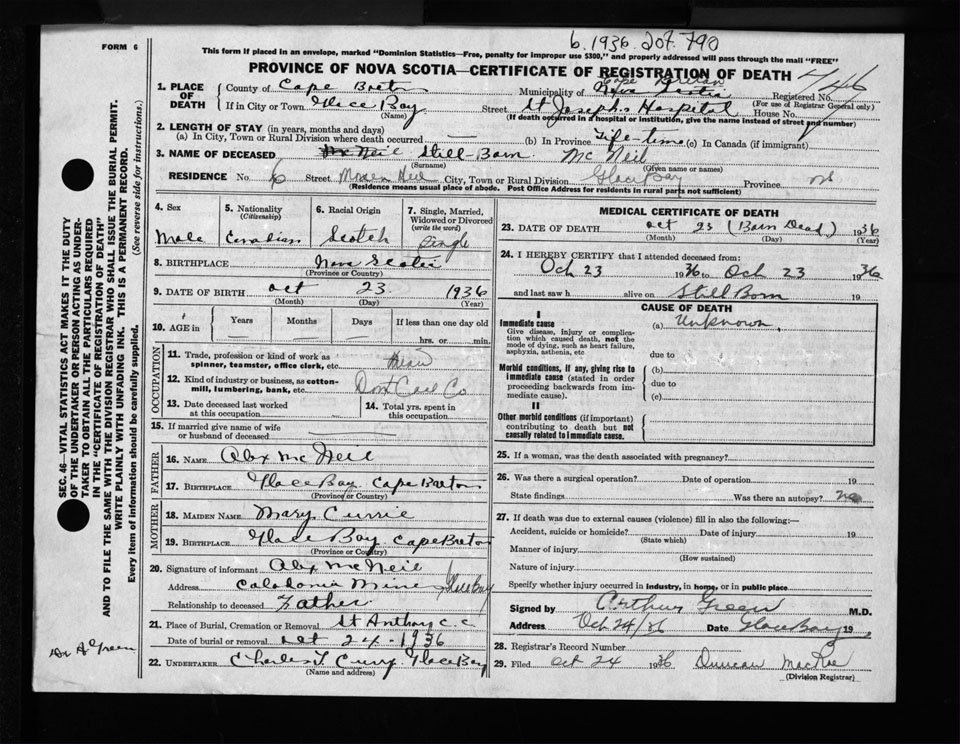 6.1936.207.790
FORM 6
This form if placed in an envelope, marked "Dominion Statistics—Free, penalty for improper use $300," and properly addressed will pass through the mail "FREE"
PROVINCE OF NOVA SCOTIA—CERTIFICATE OF REGISTRATION OF DEATH
1. PLACE OF DEATH
County of Cape Breton Municipality of Cape Breton Nova Scotia Registered No.
(For use of Registrar General only)
If in City or Town Glace Bay Street St Joseph's Hospital House No.
(Name) (If death occurred in a hospital or institution, give the name instead of street and number)
2. LENGTH OF STAY (in years, months and days)
(a) In City, Town or Rural Division where death occurred — (b) In Province Life-time (c) In Canada (if immigrant)
3. NAME OF DECEASED Mc Neil Still-Born Mc Neil
(Surname) (Given name or names)
RESIDENCE No. 6 Street City, Town or Rural Division Glace Bay Province NS
(Residence means usual place of abode. Post Office Address for residents in rural parts not sufficient)
4. Sex Male
5. Nationality (Citizenship) Canadian
6. Racial Origin Scotch
7. Single, Married, Widowed or Divorced (write the word) Single
8. BIRTHPLACE Nova Scotia
(Province or Country)
9. DATE OF BIRTH Oct 23 1936
(Month) (Day) (Year)
10. AGE in Years Months Days If less than one day old
hrs. or min.
OCCUPATION
11. Trade, profession or kind of work as spinner, teamster, office clerk, etc.
12. Kind of industry or business, as cotton-mill, lumbering, bank, etc. Dom Coal Co
13. Date deceased last worked at this occupation
14. Total yrs. spent in this occupation
15. If married give name of wife or husband of deceased
FATHER
16. NAME Alex Mc Neil
17. BIRTHPLACE Glace Bay Cape Breton
(Province or Country)
MOTHER
18. MAIDEN NAME Mary Currie
19. BIRTHPLACE Glace Bay Cape Breton
(Province or Country)
20. Signature of informant Alex McNeil
Address Caledonia Mine Glace Bay
Relationship to deceased Father
21. Place of Burial, Cremation or Removal St Anthony C.C.
Date of burial or removal Oct 24 - 1936
22. UNDERTAKER Charles T Curry Glace Bay
(Name and address)
MEDICAL CERTIFICATE OF DEATH
23. DATE OF DEATH Oct 23 (Born Dead) 1936
(Month) (Day) (Year)
24. I HEREBY CERTIFY that I attended deceased from:
Oct 23 1936 to Oct 23 1936
and last saw h alive on Still Born 19
CAUSE OF DEATH
I
Immediate cause (a) Unknown
Give disease, injury or complication which caused death, not the mode of dying, such as heart failure, asphyxia, asthenia, etc
due to
Morbid conditions, if any, giving rise to immediate cause (stated in order proceeding backwards from immediate cause).
(b)
due to
(c)
II
Other morbid conditions (if important) contributing to death but not causally related to immediate cause.
25. If a woman, was the death associated with pregnancy?
26. Was there a surgical operation? Date of operation 19
State findings Was there an autopsy? no
27. If death was due to external causes (violence) fill in also the following:—
Accident, suicide or homicide? Date of injury 19
(State which)
Manner of injury
(How sustained)
Nature of injury
Specify whether injury occurred in industry, in home, or in public place
Signed by Arthur Green M.D.
Address Oct 24/36 Date Glace Bay 19
28. Registrar's Record Number
29. Filed Oct 24 1936 Duncan MacRae
(Division Registrar)
SEC. 46—VITAL STATISTICS ACT MAKES IT THE DUTY
OF THE UNDERTAKER OR PERSON ACTING AS UNDER-
TAKER TO OBTAIN ALL THE PARTICULARS REQUIRED
IN THE "CERTIFICATE OF REGISTRATION OF DEATH"
AND TO FILE THE SAME WITH THE DIVISION REGISTRAR WHO SHALL ISSUE THE BURIAL PERMIT.
WRITE PLAINLY WITH UNFADING INK. THIS IS A PERMANENT RECORD.
Every item of information should be carefully supplied. (See reverse side for instructions.)
Dr A Green